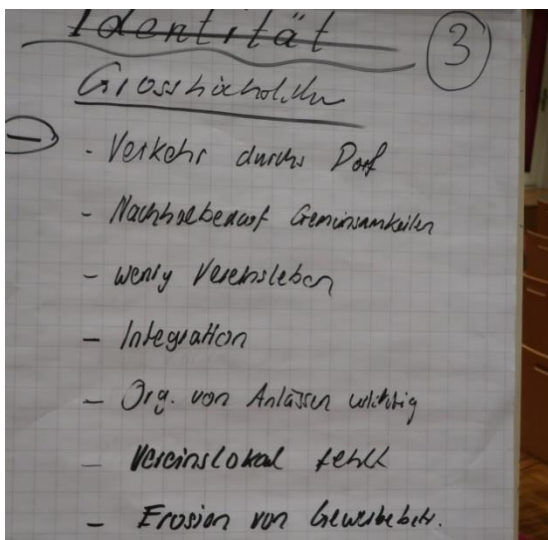 Identität
3
Grosshöchstetten
–
- Verkehr durchs Dorf
- Nachholbedarf Gemeinsamkeiten
- wenig Vereinsleben
- Integration
- Org. von Anlässen wichtig
- Vereinslokal fehlt
- Erosion von Gewerbebetr.